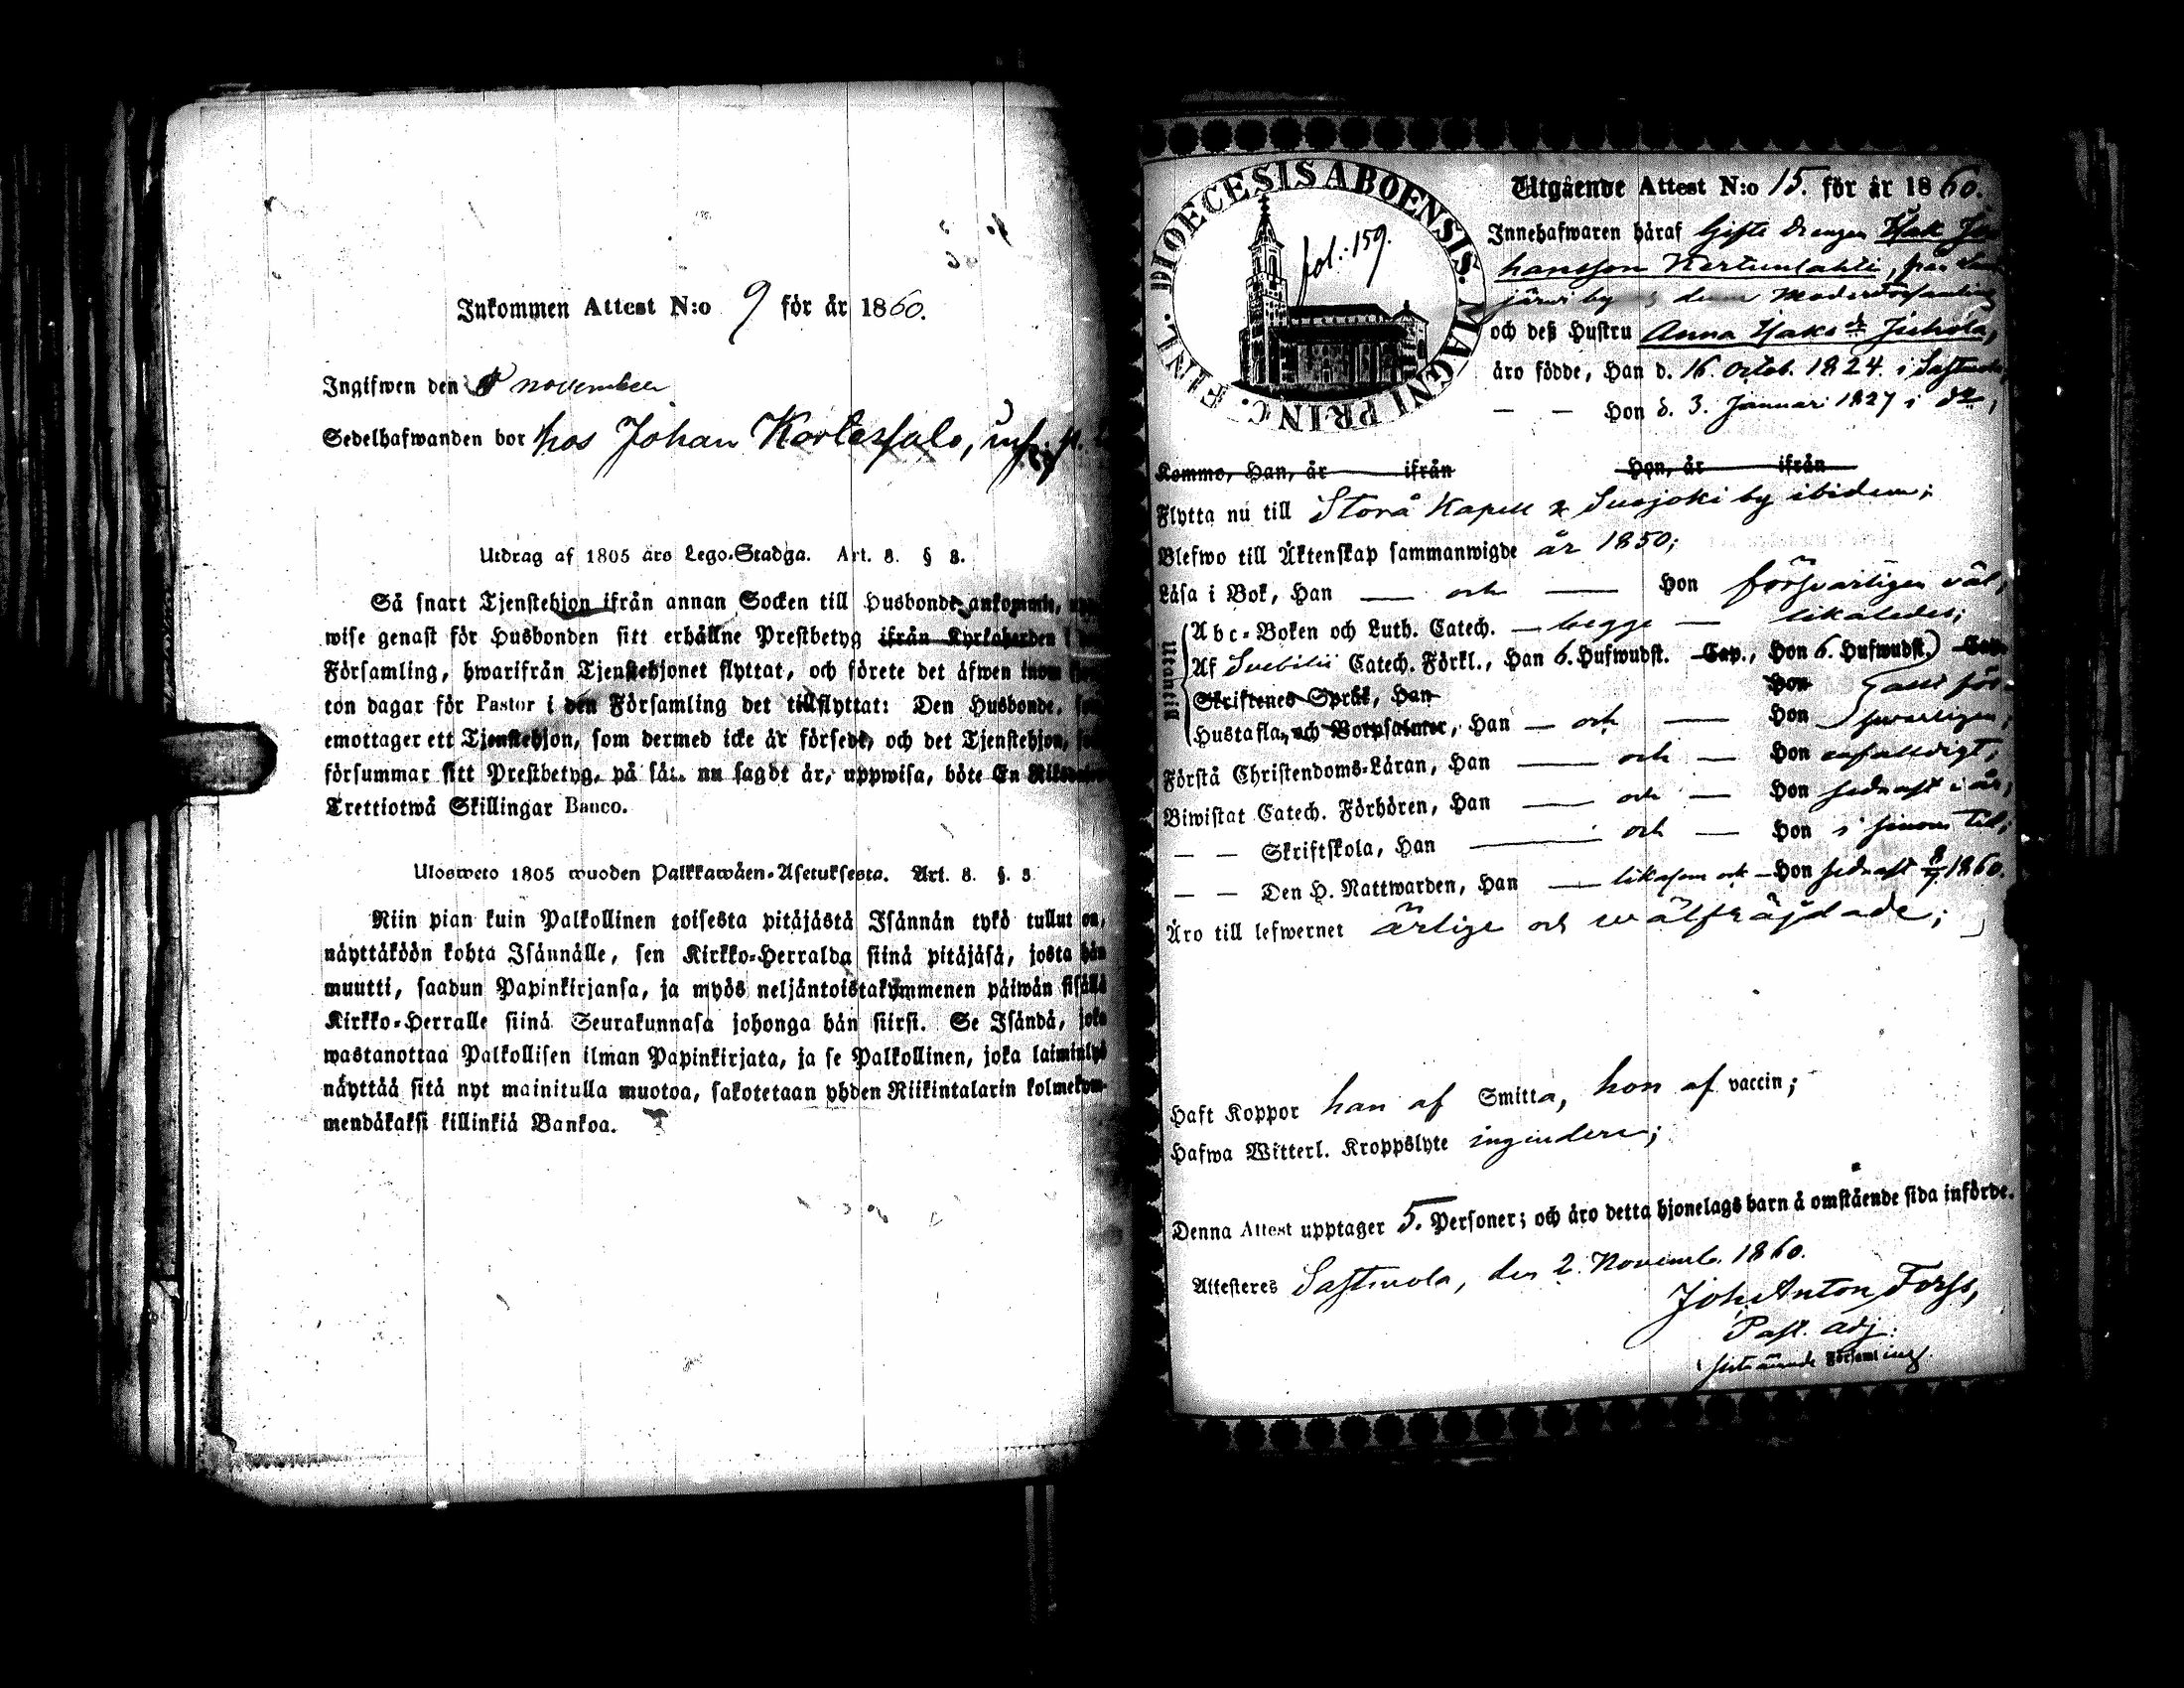 Inkommen Attest N:o 9 för år 1860.
Ingifwen den november
Sedelhafwanden bor hos Johan Kortessalo,
Utdrag af 1805 års Lego-Stadga. Art. 8. § 3.
Så snart Tjenstehjon ifrån annan Socken till Husbonde ankommit,
wise genast för Husbonden sitt erhållne Prestbetyg ifrån Kyrkoherden i
Församling, hwarifrån Tjenstehjonet flyttat, och förete det äfwen inom
ton dagar för Pastor i den Församling det tillflyttat: Den Husbonde,
emottager ett Tjenstehjon, som dermed icke är försedt, och det Tjenstehjon,
försummar sitt Prestbetyg, på sätt nu sagdt är, uppwisa, böte En
Trettiotwå Skillingar Banco.
Ulosweto 1805 wuoden Palkkawäen-Asetuksesta. Art. 8. §. 3
Niin pian kuin Palkollinen toisesta pitäjästä Isännän tykö tullut on,
näyttäköön kohta Isännälle, sen Kirkko-Herralda siinä pitäjäsä, josta hän
muutti, saadun Papinkirjansa, ja myös neljäntoistakymmenen päiwän sisällä
Kirkko-Herralle siinä Seurakunnasa johonga hän siirsi. Se Isändä, joka
wastanottaa Palkollisen ilman Papinkirjata, ja se Palkollinen, joka laiminlyö
näyttää sitä nyt mainitulla muotoa, sakotetaan yhden Riikintalarin kolmekym-
mendäkaksi killinkiä Bankoa.
DIOECESIS ABOENSIS. MAGNI PRINC. FINL.
fol. 159.
Utgående Attest N:o 15. för år 1860.
Innehafwaren häraf Gifte Drengen Isak Jo
hansson
järwi by Moderförsamling
och deß Hustru Anna Isaks dr
äro födde, Han d. 16. Octob. 1824. i Sastmola,
— — Hon d. 3. Januari 1827 i do,
Komme, Han, år ifrån Hon, år ifrån
Flytta nu till Storå Kapell & Suojoki by ibidem;
Blefwo till Äktenskap sammanwigde år 1850;
Läsa i Bok, Han — och — Hon försvarligen väl;
Utantill
Abc-Boken och Luth. Catech. — begge — likaledes;
Af Svebilii Catech. Förkl., Han 6. Hufwudst. Cap., Hon 6. Hufwudst. Cap.
Skriftenes Språk, Han Hon allt för-
Hustafla, och Botpsalmer, Han — och — Hon svarligen;
Förstå Christendoms-Läran, Han — och — Hon enfaldigt;
Biwistat Catech. Förhören, Han — och — Hon sednast i år;
— — Skriftskola, Han — och — Hon i sinom tid;
— — Den H. Nattwarden, Han — likasom och — Hon sednast 1860.
Äro till lefwernet ärlige och wälfräjdade;
Haft Koppor han af Smitta, hon af vaccin;
Hafwa Witterl. Kroppslyte ingendera;
Denna Attest upptager 5. Personer; och äro detta hjonelags barn å omstående sida införde.
Attesteres Sastmola, den 2. Novemb. 1860.
Joh. Anton Forss,
Past. adj.
Församling.